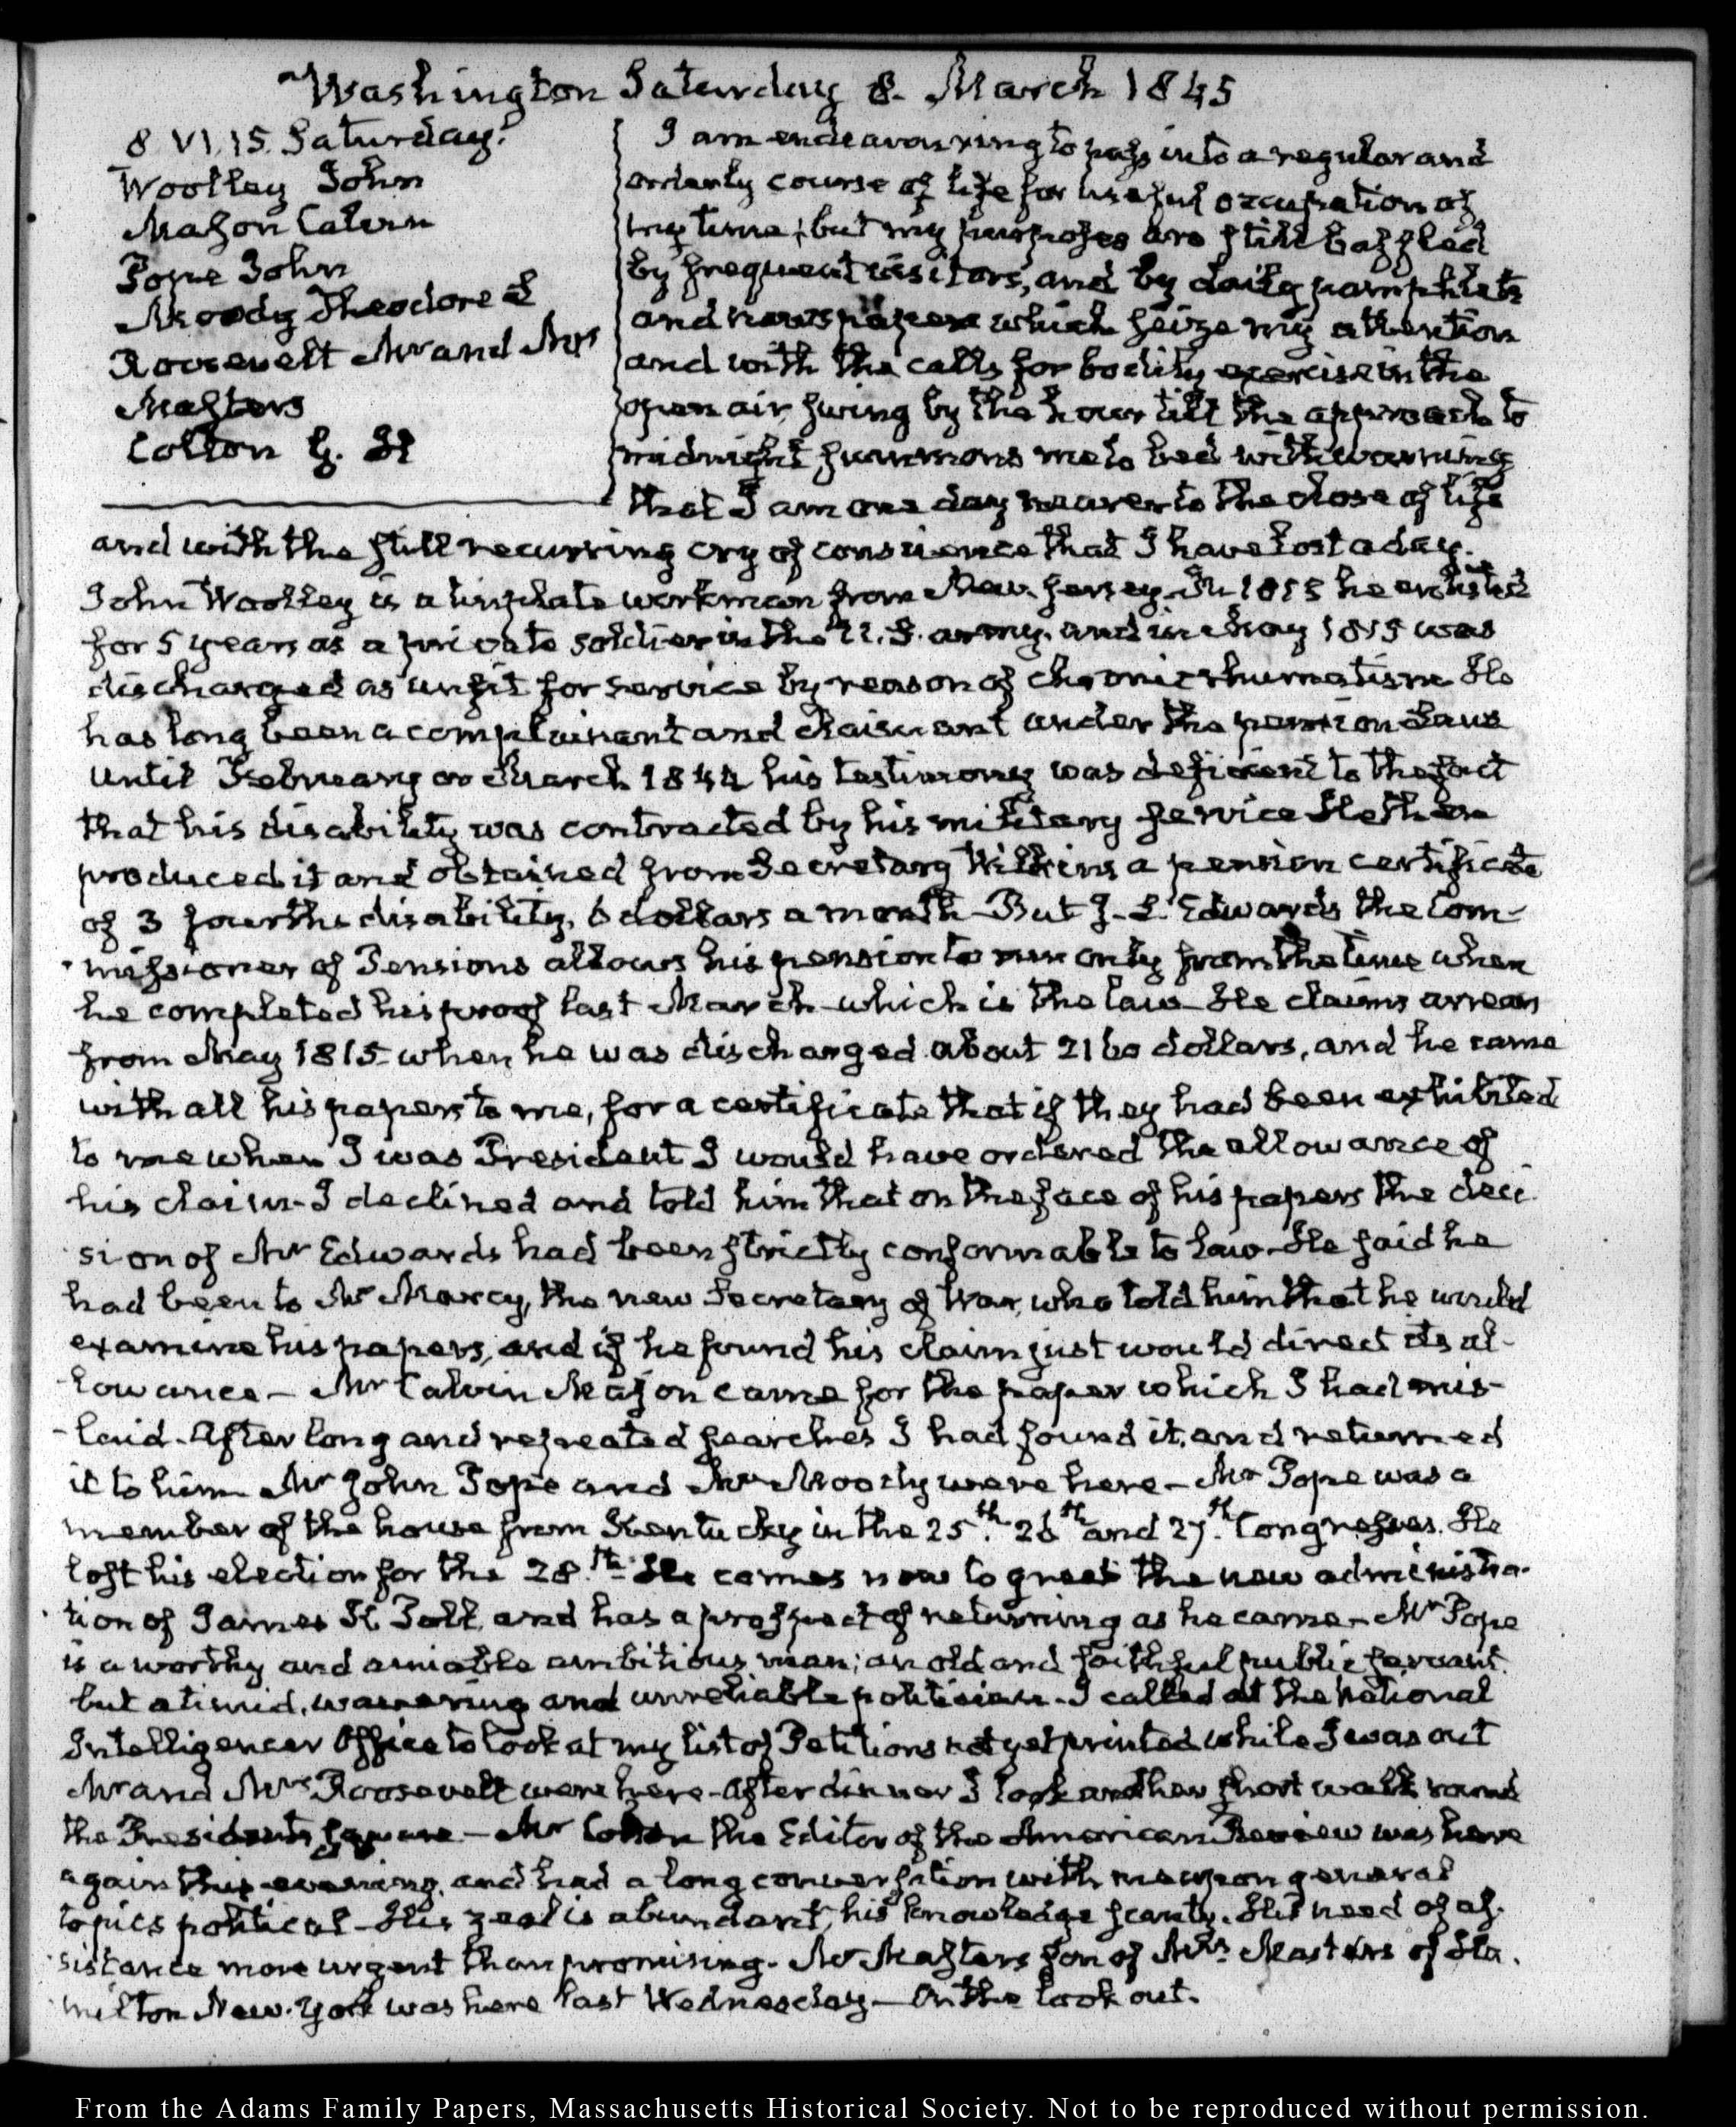 Washington Saturday 8. March 1845
8 VI.15. Saturday.
Woolley John
Mason Calvin
Pope John
Moody Theodore L
Roosevelt Mr and Mrs
Masters
Colton G. H
I am endeavouring to pass into a regular and
orderly course of life for useful occupation of
my time; but my purposes are still baffled
by frequent visitors, and by daily pamphlets
and newspapers which seize my attention
and with the calls for bodily exercise in the
open air, swing by the hour till the approach to
midnight summons me to bed with warning
that I am one day nearer to the close of life
and with the still recurring cry of conscience that I have lost a day.
John Woolley is a tinplate workman from New-Jersey. In he enlisted
for 5 years as a private soldier in the U. S. army. and in May 1815 was
discharged as unfit for service by reason of chronic rhumatism He
has long been a complainant and claimant under the pension Laws
until February or March 1844 his testimony was deficient to the fact
that his disability was contracted by his military service He then
produced it and obtained from Secretary Wilkins a pension certificate
of 3 fourths disability, 6 dollars a month—But J. L. Edwards the Com-
missioner of Pensions allows his pension to run only from the time when
he completed his proof last March—which is the law—He claims arrears
from May 1815 when he was discharged about 2160 dollars, and he came
with all his papers to me, for a certificate that if they had been exhibited
to me when I was President I would have ordered the allowance of
his claim—I declined and told him that on the face of his papers the deci-
sion of Mr Edwards had been strictly conformable to law—He said he
had been to Mr Marcy, the new Secretary of War, who told him that he would
examine his papers, and if he found his claim just would direct its al-
lowance—Mr Calvin Mason came for the paper which I had mis-
laid. After long and repeated searches I had found it, and returned
it to him—Mr John Pope and Mr Moody were here—Mr Pope was a
member of the house from Kentucky in the 25th. 26th and 27th. Congresses. He
lost his election for the 28.th—He comes now to greet the new administra-
tion of James K Polk, and has a prospect of returning as he came—Mr Pope
is a worthy and amiable ambitious man; an old and faithful public servant.
but a timid, wavering and unreliable politician—I called at the National
Intelligencer Office to look at my list of Petitions not yet printed while I was out
Mr and Mrs Roosevelt were here—After dinner I took another short walk round
the President's square—Mr Colton the Editor of the American Review was here
again this evening, and had a long conversation with me upon general
topics political—His zeal is abundant, his knowledge scanty. His need of as-
sistance more urgent than promising. Mr Masters son of Mrs Masters of Ha-
milton New-York was here last Wednesday—On the look out.
From the Adams Family Papers, Massachusetts Historical Society. Not to be reproduced without permission.